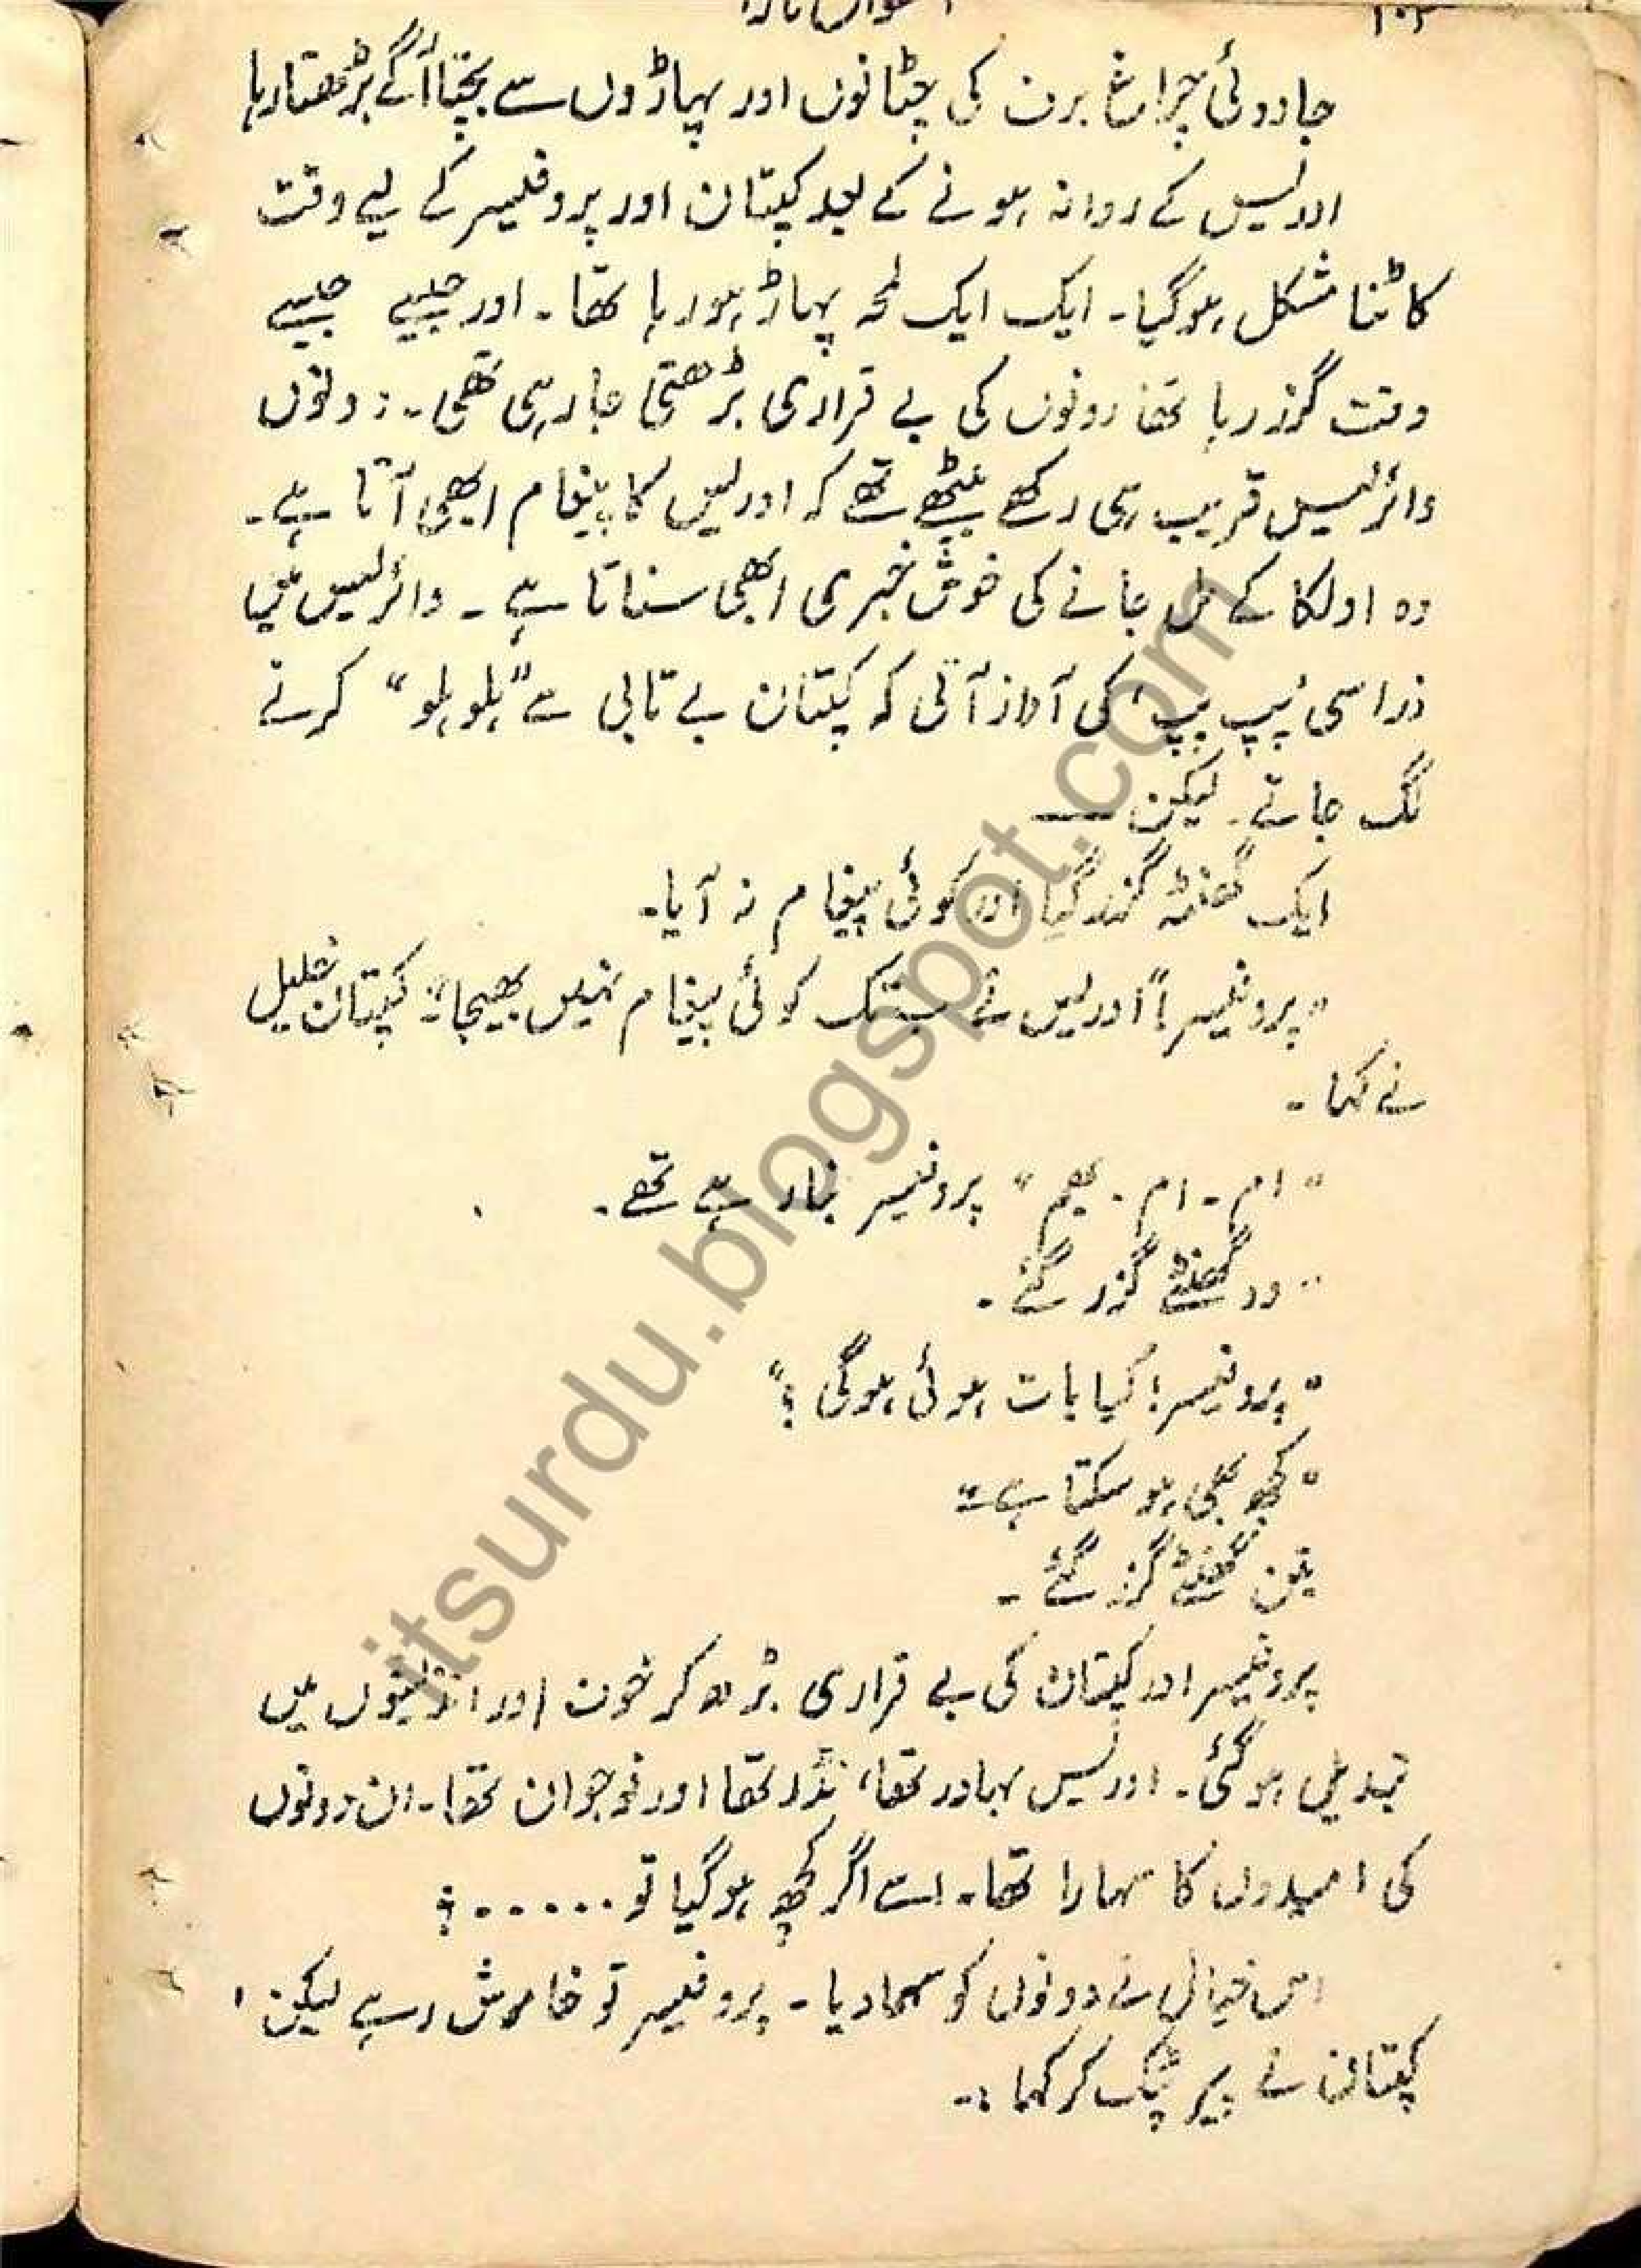 جادوئی چراغ برف کی چٹانوں اور پہاڑوں سے بچتا آگے بڑھتا رہا
ادریس کے روانہ ہونے کے بعد کپتان اور پروفیسر کے لیے وقت
کاٹنا مشکل ہوگیا۔ ایک ایک لمحہ پہاڑ ہو رہا تھا۔ اور جیسے جیسے
وقت گزر رہا تھا دونوں کی بے قراری بڑھتی جا رہی تھی۔ دونوں
وائرلیس قریب ہی رکھے بیٹھے تھے کہ ادریس کا پیغام ابھی آتا ہے۔
وہ اولکا کے مل جانے کی خوش خبری ابھی سناتا ہے۔ وائرلیس میں
ذرا سی 'پپ پپ' کی آواز آتی کہ کپتان بے تابی سے "ہلو ہلو" کرنے
لگ جاتے۔ لیکن ——
ایک گھنٹہ گزر گیا اور کوئی پیغام نہ آیا۔
"پروفیسر! ادریس نے اب تک کوئی پیغام نہیں بھیجا" کپتان خلیل
نے کہا۔
"ام۔ ام۔ ہیم" پروفیسر ہے تھے۔
دو گھنٹے گزر گئے۔
"پروفیسر! کیا بات ہوئی ہوگی؟"
"کچھ بھی ہو سکتا ہے"
تین گھنٹے گزر گئے۔
پروفیسر اور کپتان کی بے قراری بڑھ کر خوف اور اندیشوں میں
تبدیل ہوگئی۔ ادریس بہادر تھا، نڈر تھا اور نوجوان تھا۔ ان دونوں
کی امیدوں کا سہارا تھا۔ اسے اگر کچھ ہوگیا تو ......؟
اس خیال نے دونوں کو سہما دیا۔ پروفیسر تو خاموش رہے لیکن
کپتان نے پیر پٹک کر کہا:۔
itsurdu.blogspot.com